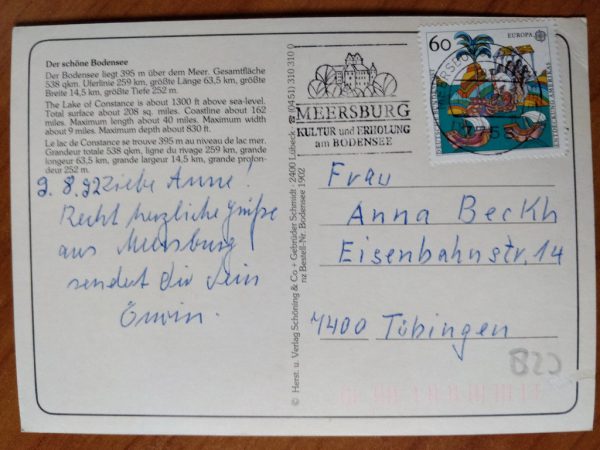 Der schöne Bodensee
Der Bodensee liegt 395 m über dem Meer. Gesamtfläche
538 qkm. Uferlinie 259 km, größte Länge 63,5 km, größte
Breite 14,5 km, größte Tiefe 252 m.
The Lake of Constance is about 1300 ft above sea-level.
Total surface about 208 sq. miles. Coastline about 162
miles. Maximum length about 40 miles. Maximum width
about 9 miles. Maximum depth about 830 ft.
Le lac de Constance se trouve 395 m au niveau de lac mer.
Grandeur totale 538 qkm, ligne du rivage 259 km, grande
longeur 63,5 km, grande largeur 14,5 km, grande profon-
deur 252 m.
9. 8. 92 Liebe Anne!
Recht herzliche Grüße
aus Meersburg
sendet dir Dein
Erwin.
© Herst. u. Verlag Schöning & Co + Gebrüder Schmidt · 2400 Lübeck · ☎ (04 51) 310 310 0
nz Bestell-Nr. Bodensee 1902
MEERSBURG
KULTUR und ERHOLUNG
am BODENSEE
60
EUROPA
Frau
Anna Beckh
Eisenbahnstr. 14
7400 Tübingen
B20